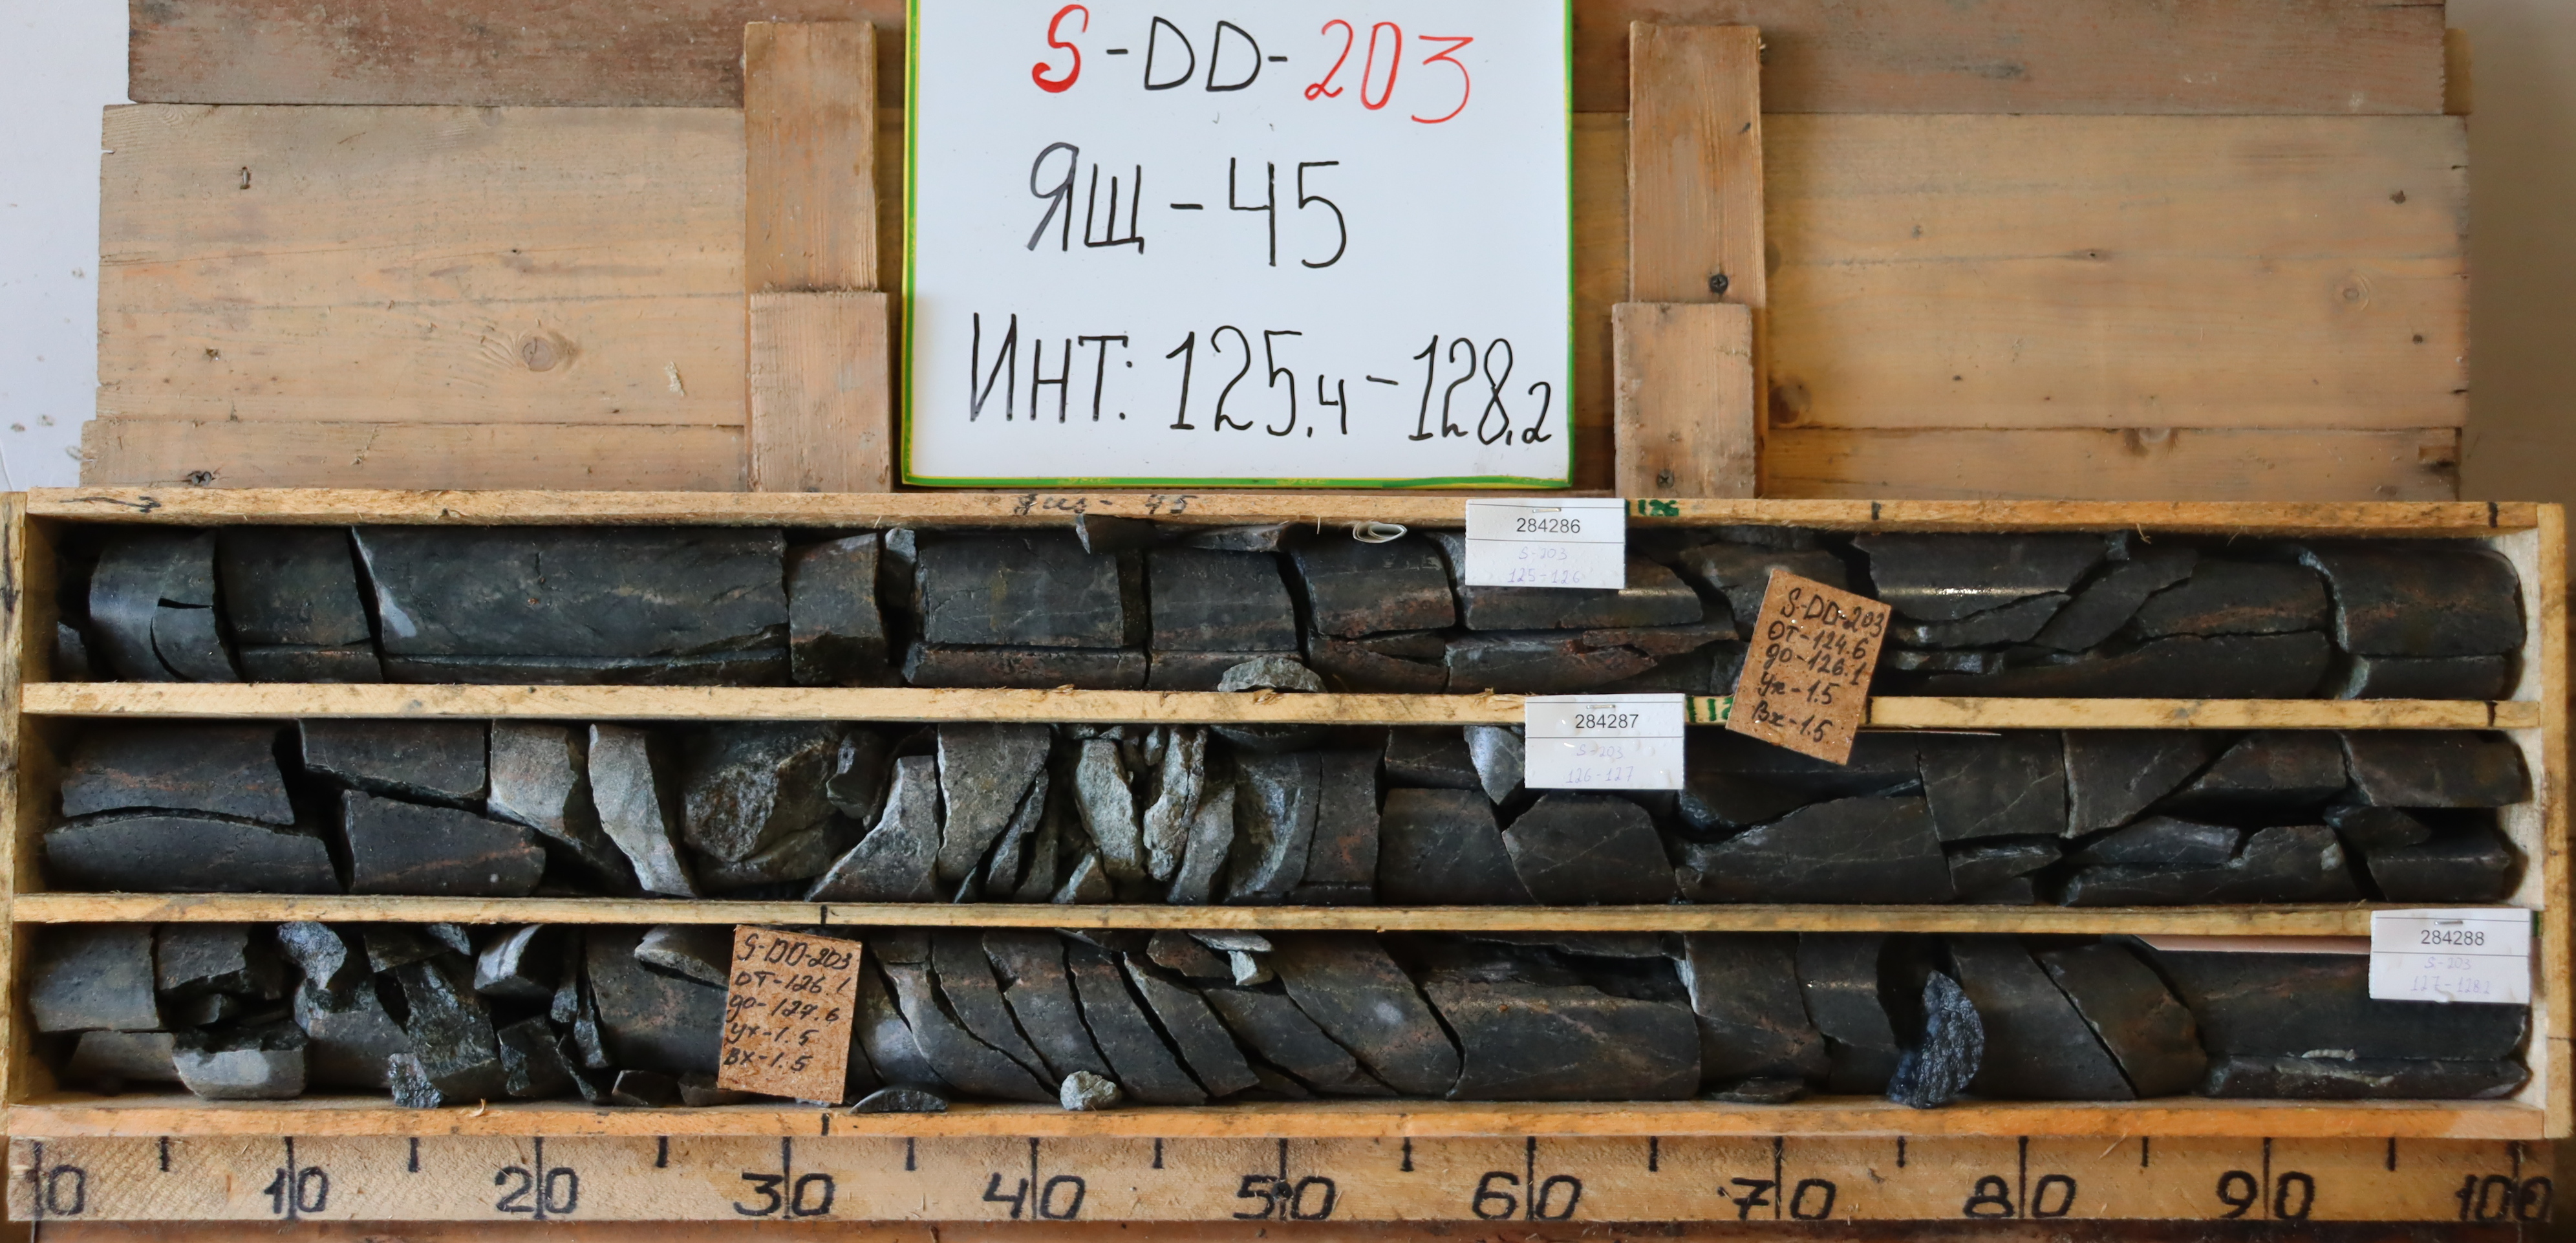 S-DD-203
ЯЩ-45
ИНТ: 125,4-128,2
Ящ-45
284286
S-203
125-126
126
S-DD-203
от-124.6
до-126.1
Ух-1.5
Вх-1.5
284287
S-203
126-127
S-DD-203
от-126.1
до-127.6
Ух-1.5
Вх-1.5
284288
S-203
127-128.2
0 10 20 30 40 50 60 70 80 90 100